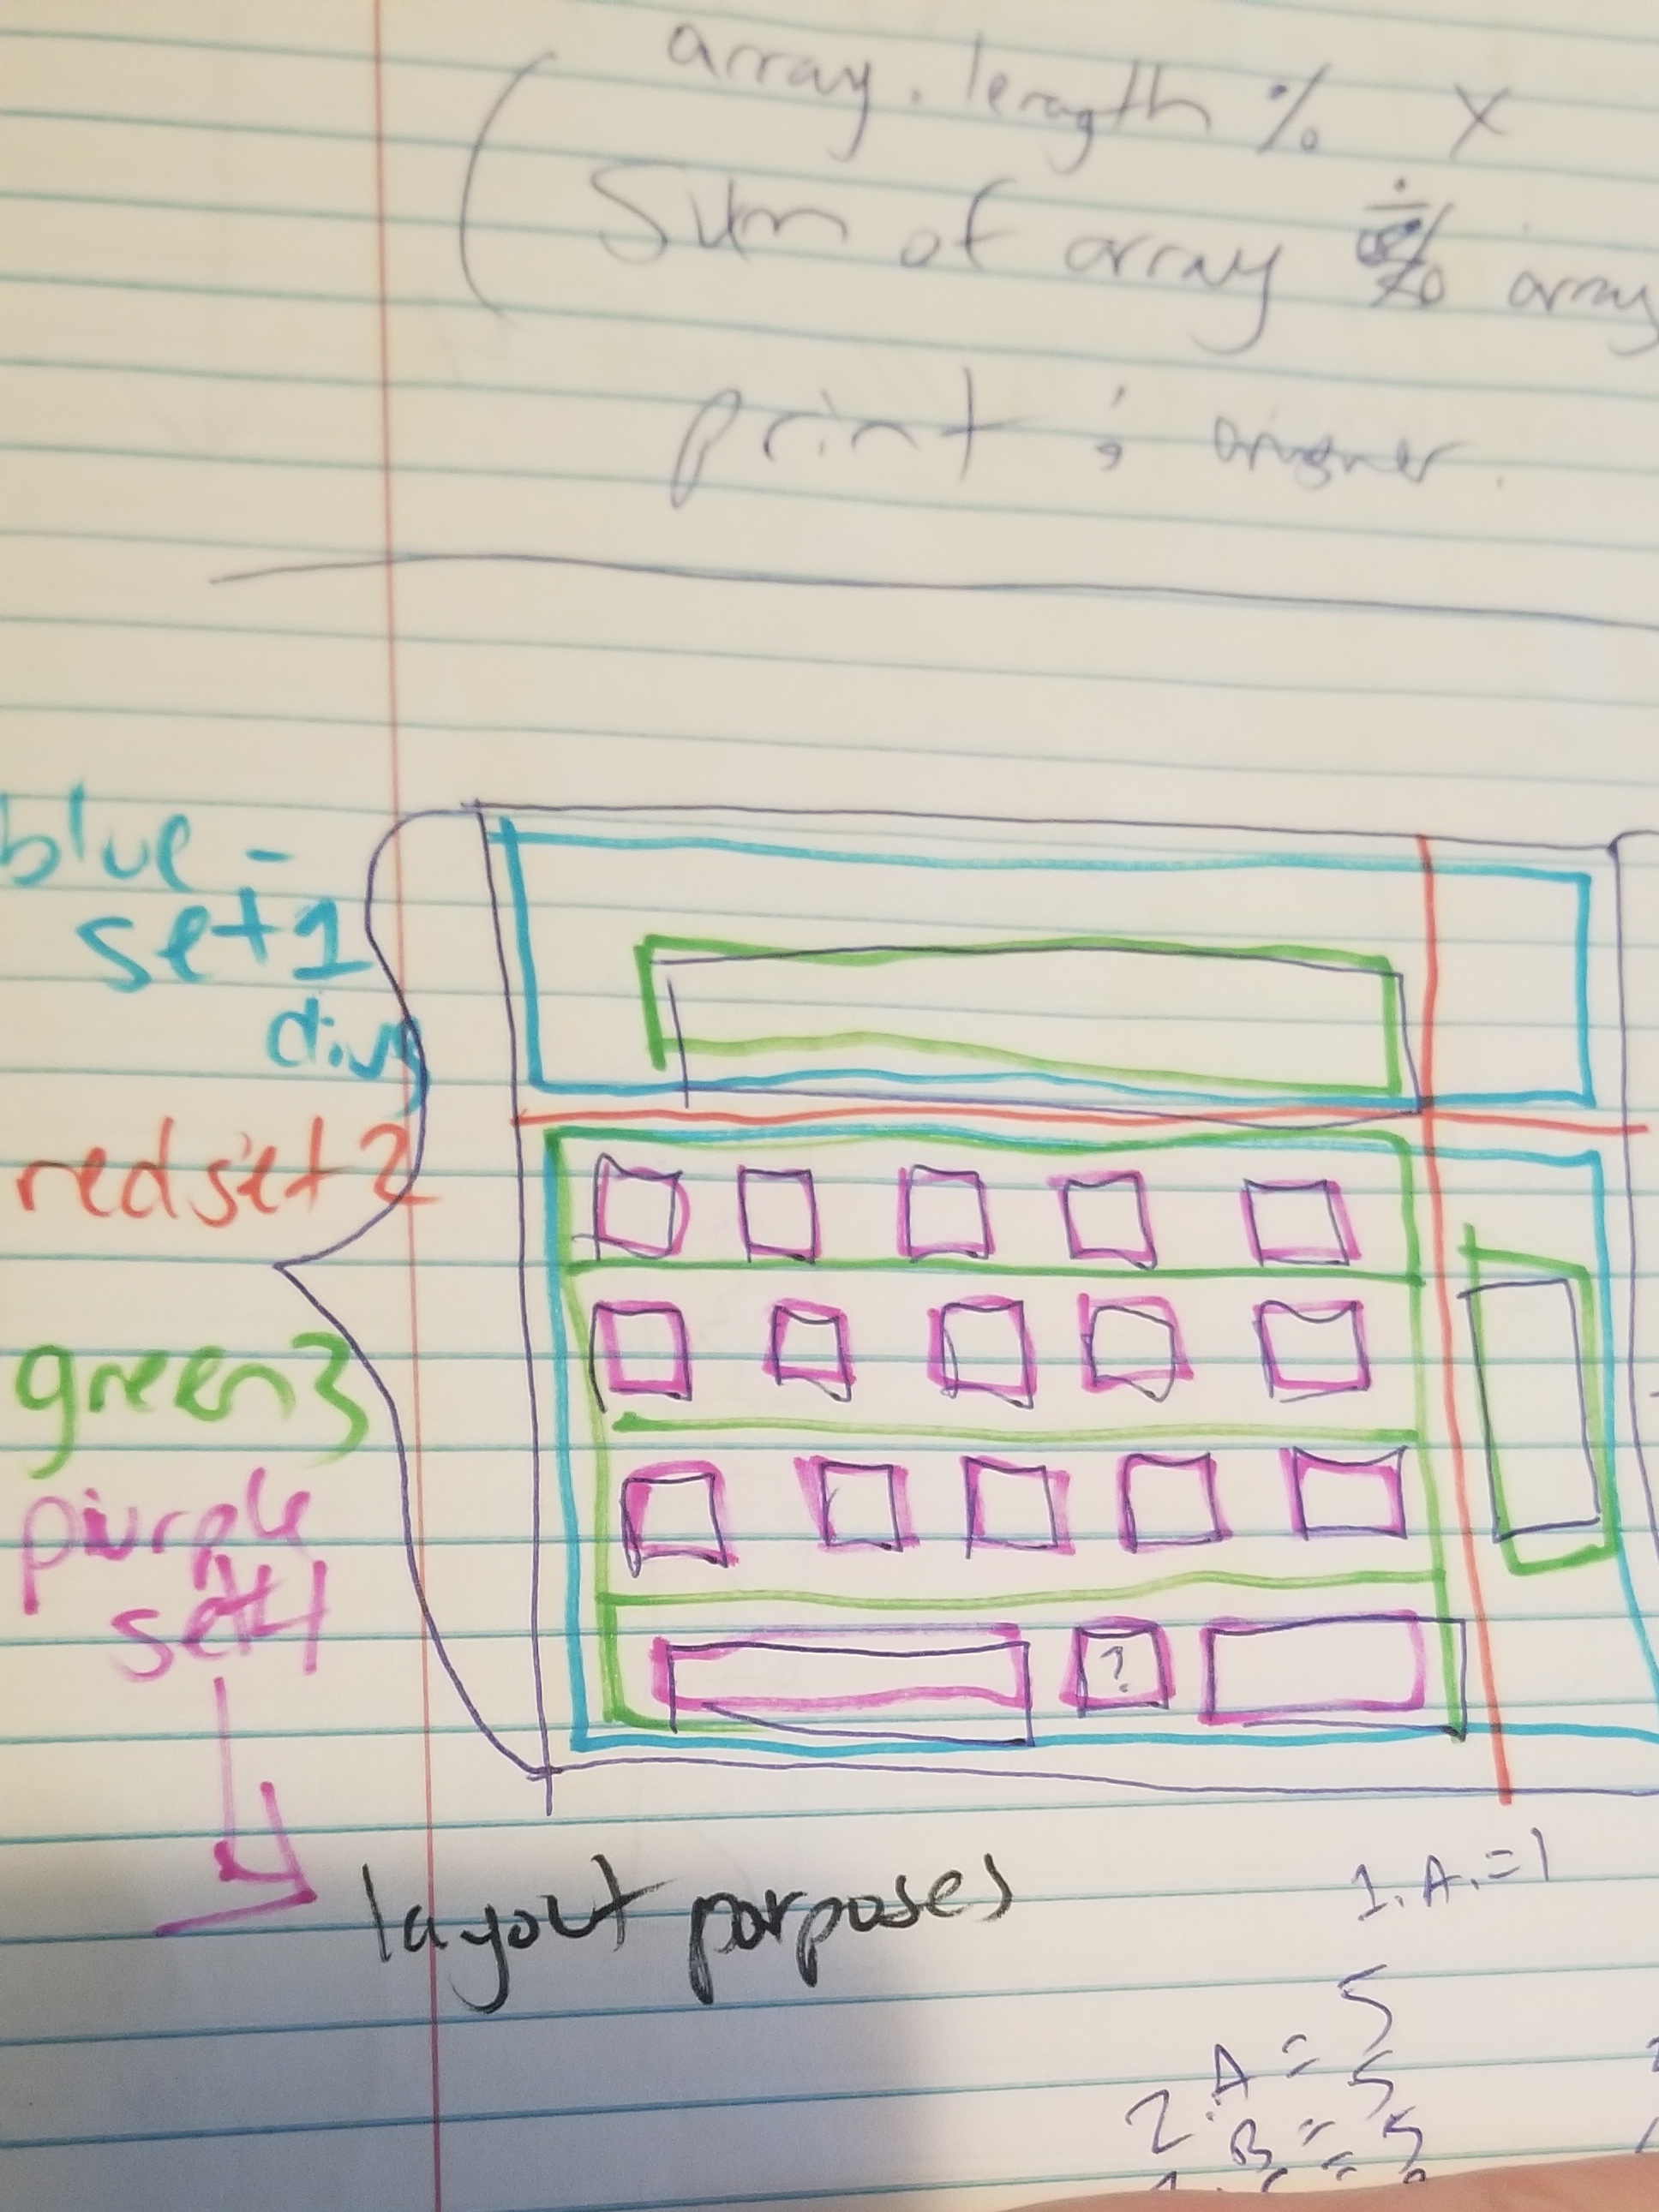 array.length % X
Sum of array ÷ array
print ; answer.
blue -
set 1
divs
red set 2
green 3
purple
set 4
?
layout porposes
1. A. = 1
5
2. A = 5
B = 5